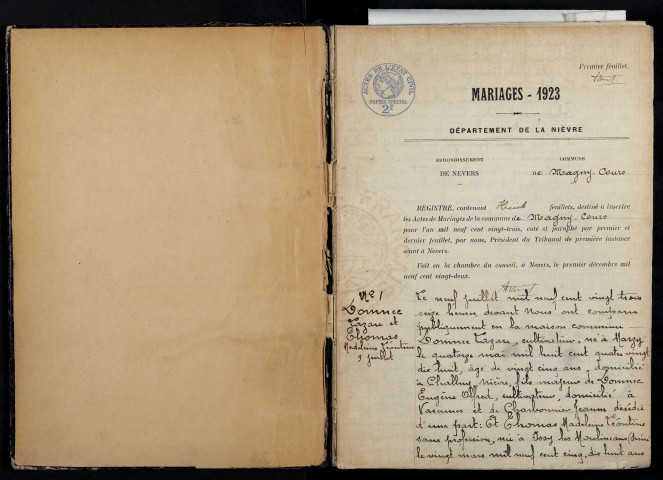 Premier feuillet.
ACTES DE L'ETAT CIVIL
PAPIER SPECIAL
2F
MARIAGES - 1923
DÉPARTEMENT DE LA NIÈVRE
ARRONDISSEMENT
DE NEVERS
COMMUNE
DE Magny-Cours
REGISTRE, contenant feuillets, destiné à inscrire
les Actes de Mariages de la commune de Magny-Cours
pour l'an mil neuf cent vingt-trois, coté et paraphé par premier et
dernier feuillet, par nous, Président du Tribunal de première instance
séant à Nevers.
Fait en la chambre du conseil, à Nevers, le premier décembre mil
neuf cent vingt-deux.
No 1
Domnec
Lazare et
Thomas
Madeleine Léontine
9 juillet
Le neuf juillet mil neuf cent vingt trois
seize heures devant Nous ont comparu
publiquement en la maison commune
Domnec Lazare, cultivateur, né à Marzy
le quatorze mai mil huit cent quatre vingt
dix huit, âgé de vingt cinq ans, domicilié
à Challuy, Nièvre, fils majeur de Domnec
Eugène Alfred, cultivateur, domicilié à
Varennes et de Charbonnier Jeanne décédée
d'une part: Et Thomas Madeleine Léontine
sans profession, née à Issy les Moulineaux (Seine)
le vingt mars mil neuf cent cinq, dix huit ans